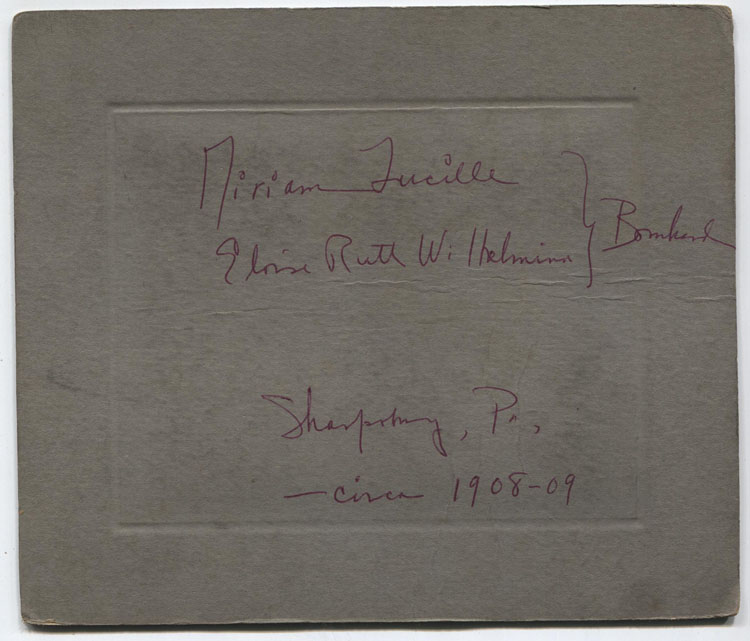 Miriam Lucille
Eloise Ruth Wilhelmina } Bomhard
Sharpsburg, Pa.,
— circa 1908-09